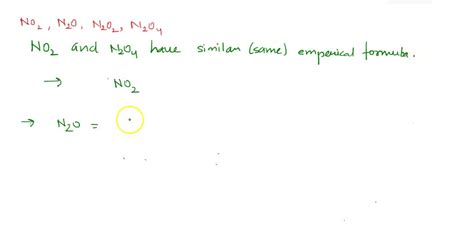 NO₂, N₂O, N₂O₂, N₂O₄
NO₂ and N₂O₄ have similar (same) emperical formula.
→ NO₂
→ N₂O =